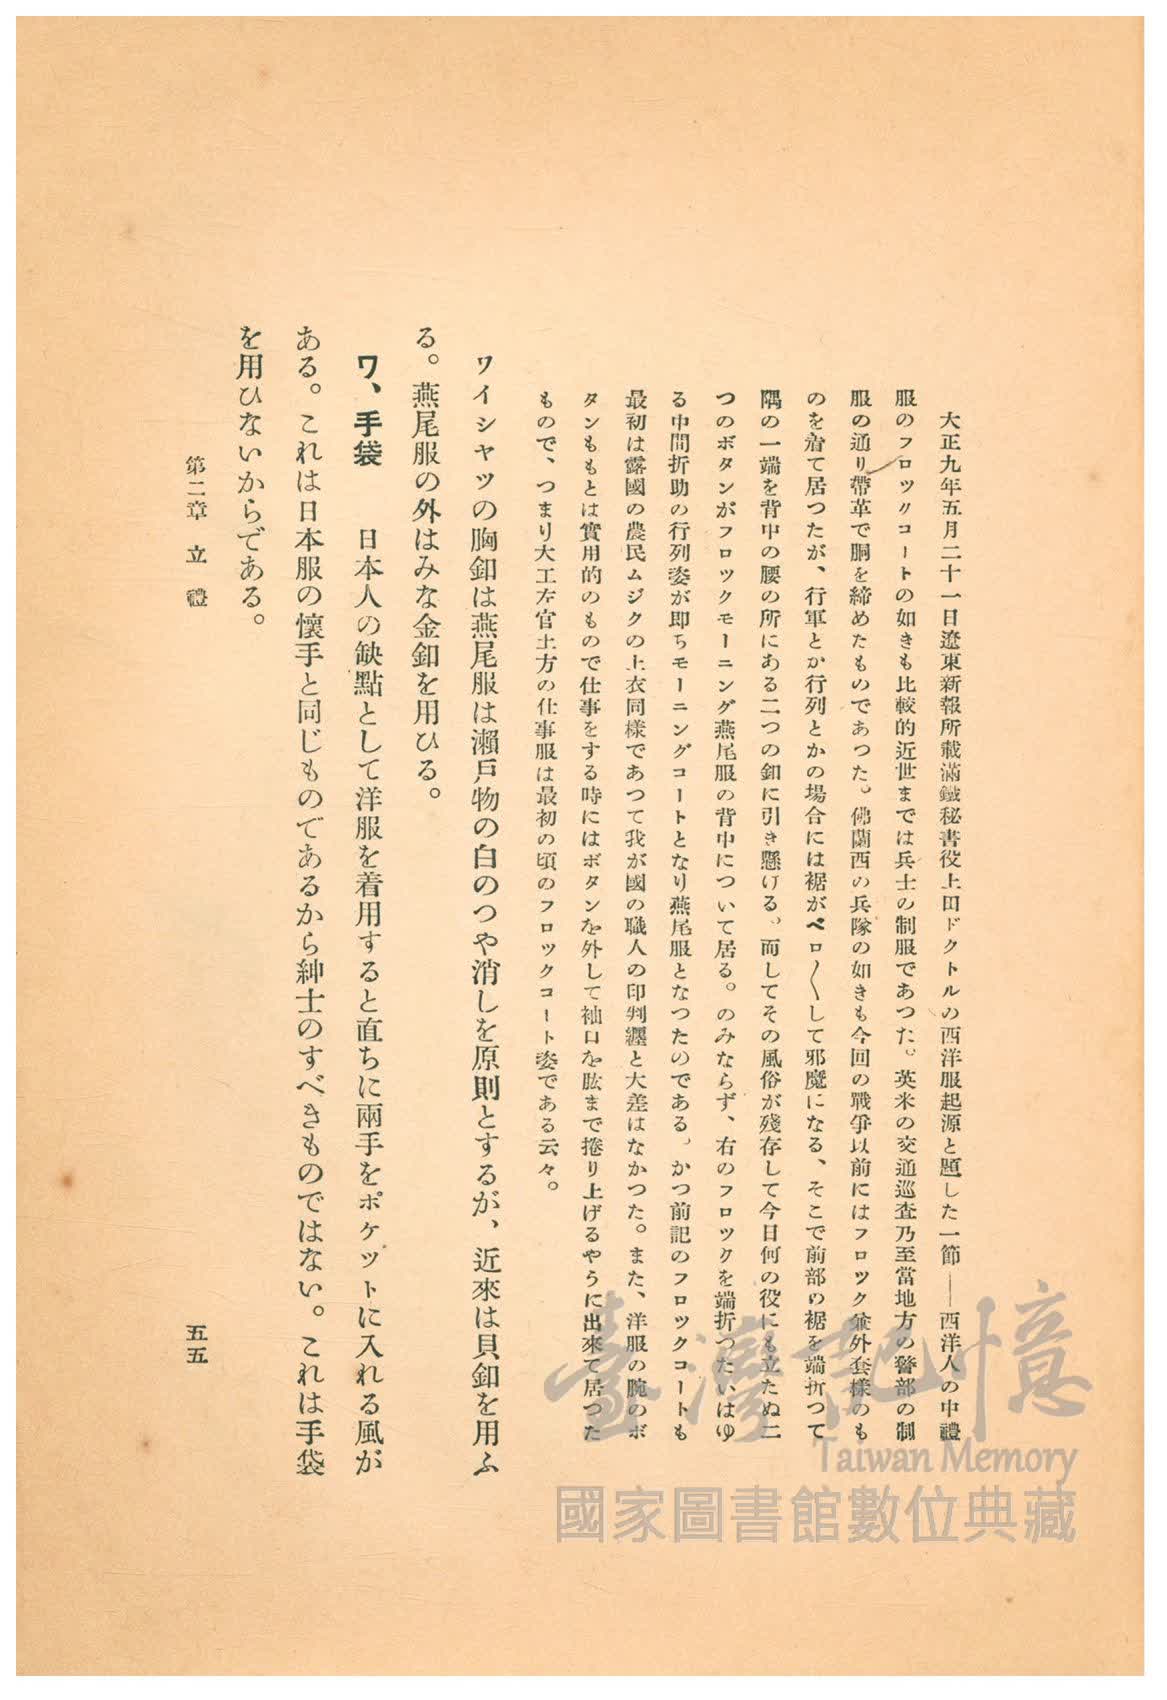 大正九年五月二十一日遼東新報所載滿鐵秘書役上田ドクトルの西洋服起源と題した一節――西洋人の中禮
服のフロツクコートの如きも比較的近世までは兵士の制服であつた。英米の交通巡査乃至當地方の警部の制
服の通り帶革で胴を締めたものであつた。佛蘭西の兵隊の如きも今回の戰爭以前にはフロツク兼外套樣のも
のを着て居つたが、行軍とか行列とかの場合には裾がベロ〱して邪魔になる、そこで前部の裾を端折つて
隅の一端を背中の腰の所にある二つの釦に引き懸ける。而してその風俗が殘存して今日何の役にも立たぬ二
つのボタンがフロツクモーニング燕尾服の背中について居る。のみならず、右のフロツクを端折つたいはゆ
る中間折助の行列姿が即ちモーニングコートとなり燕尾服となつたのである。かつ前記のフロツクコートも
最初は露國の農民ムジクの上衣同樣であつて我が國の職人の印判纒と大差はなかつた。また、洋服の腕のボ
タンももとは實用的のもので仕事をする時にはボタンを外して袖口を肱まで捲り上げるやうに出來て居つた
もので、つまり大工左官土方の仕事服は最初の頃のフロツクコート姿である云々。
ワイシヤツの胸釦は燕尾服は瀨戸物の白のつや消しを原則とするが、近來は貝釦を用ふ
る。燕尾服の外はみな金釦を用ひる。
ワ、手袋　日本人の缺點として洋服を着用すると直ちに兩手をポケツトに入れる風が
ある。これは日本服の懷手と同じものであるから紳士のすべきものではない。これは手袋
を用ひないからである。
第二章　立禮
五五
臺灣記憶
Taiwan Memory
國家圖書館數位典藏